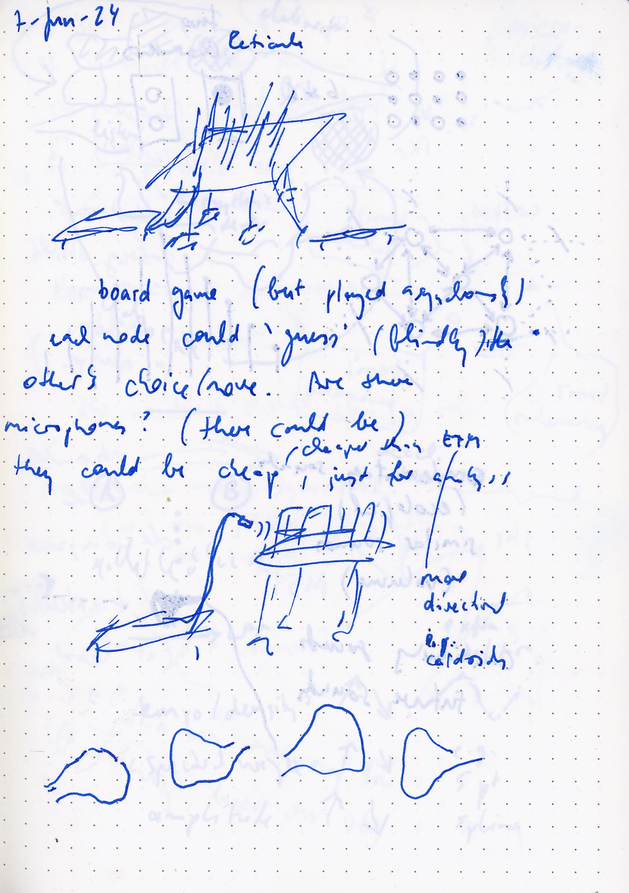 7-Jun-24
Reticule
board game (but played asynchronously)
each node could 'guess' (blindly) the
other's choice/move. Are there
microphones? (there could be)
(cheaper than
they could be cheap, just for analysis
more
directional
e.g.
cardioids